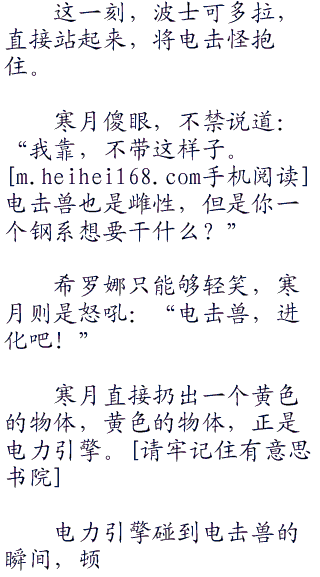 这一刻，波士可多拉，
直接站起来，将电击怪抱
住。
寒月傻眼，不禁说道：
“我靠，不带这样子。
[m.heihei168.com手机阅读]
电击兽也是雌性，但是你一
个钢系想要干什么？”
希罗娜只能够轻笑，寒
月则是怒吼：“电击兽，进
化吧！”
寒月直接扔出一个黄色
的物体，黄色的物体，正是
电力引擎。[请牢记住有意思
书院]
电力引擎碰到电击兽的
瞬间，顿